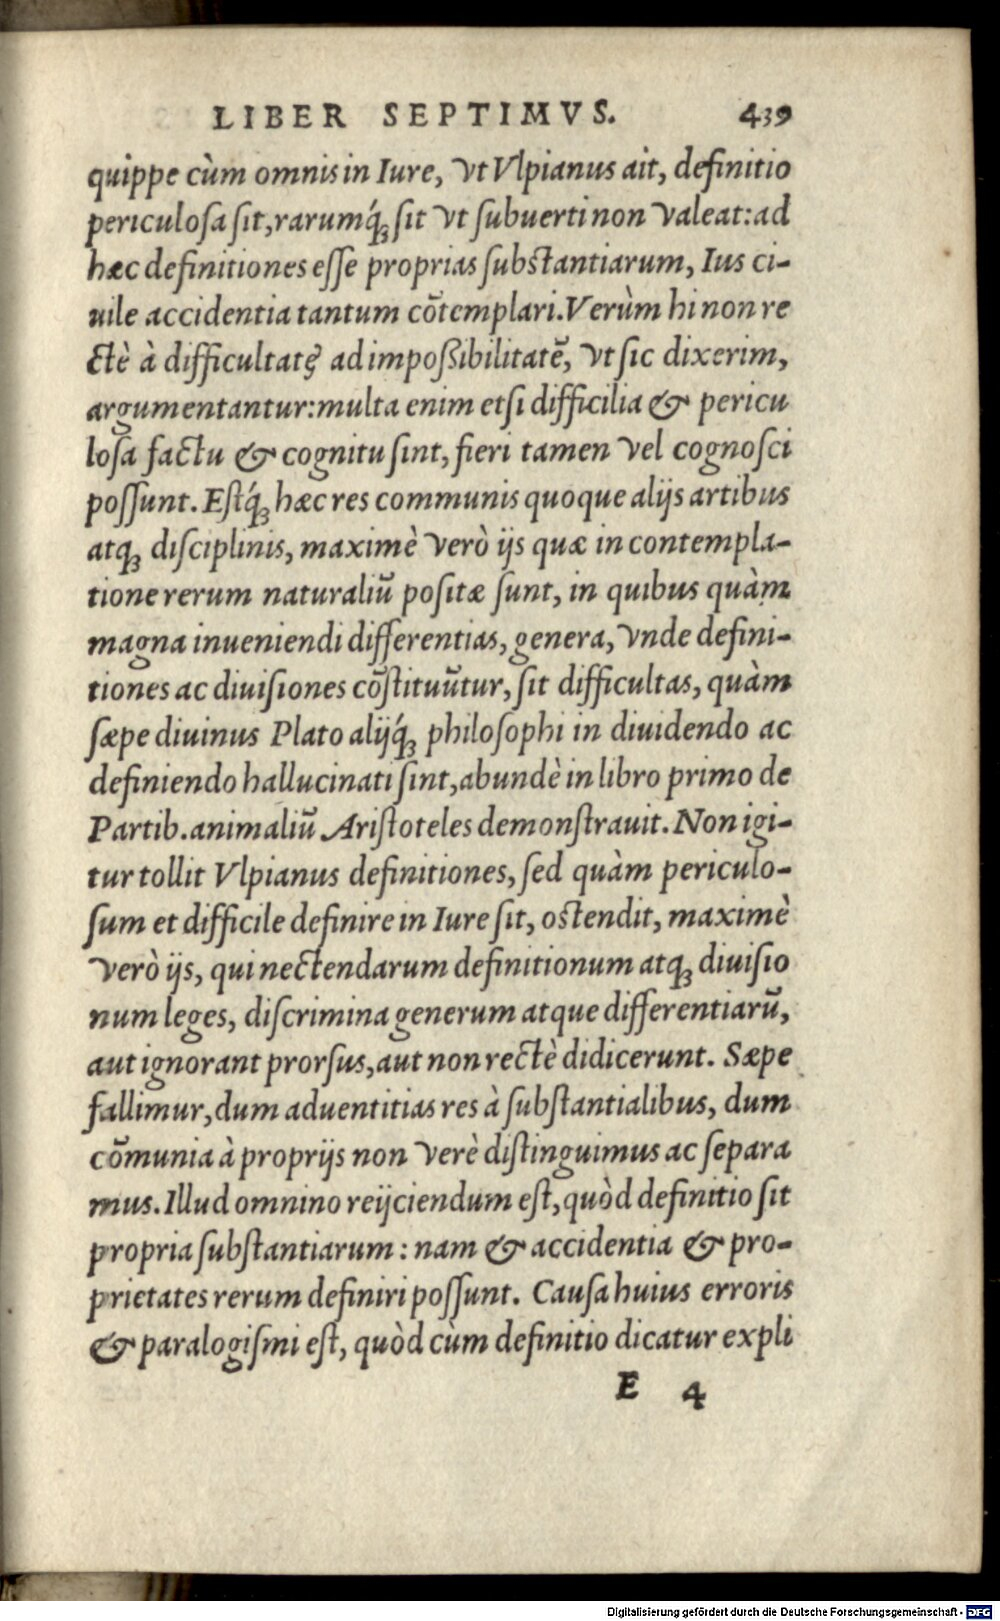 LIBER SEPTIMVS. 439
quippe cùm omnis in Iure, vt Vlpianus ait, definitio
periculosa sit, rarumq́ꝫ sit vt subuerti non valeat: ad
hæc definitiones esse proprias substantiarum, Ius ci-
uile accidentia tantum cōtemplari. Verùm hi non re
ctè à difficultatę ad impoßibilitatē, vt sic dixerim,
argumentantur: multa enim etsi difficilia & pericu
losa factu & cognitu sint, fieri tamen vel cognosci
possunt. Estq́ꝫ hæc res communis quoque alijs artibus
atqꝫ disciplinis, maximè verò ijs quæ in contempla-
tione rerum naturaliū positæ sunt, in quibus quàm
magna inueniendi differentias, genera, vnde defini-
tiones ac diuisiones cōstituūtur, sit difficultas, quàm
sæpe diuinus Plato alijq́ꝫ philosophi in diuidendo ac
definiendo hallucinati sint, abundè in libro primo de
Partib. animaliū Aristoteles demonstrauit. Non igi-
tur tollit Vlpianus definitiones, sed quàm periculo-
sum et difficile definire in Iure sit, ostendit, maximè
verò ijs, qui nectendarum definitionum atqꝫ diuisio
num leges, discrimina generum atque differentiarū,
aut ignorant prorsus, aut non rectè didicerunt. Sæpe
fallimur, dum aduentitias res à substantialibus, dum
cōmunia à proprijs non verè distinguimus ac separa
mus. Illud omnino reijciendum est, quòd definitio sit
propria substantiarum: nam & accidentia & pro-
prietates rerum definiri possunt. Causa huius erroris
& paralogismi est, quòd cùm definitio dicatur expli
E 4
Digitalisierung gefördert durch die Deutsche Forschungsgemeinschaft - DFG